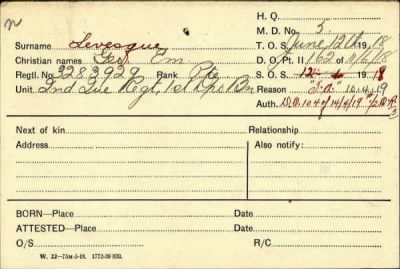 H. Q.
M. D. No. 5.
Surname Levesque T. O. S. June, 12th 1918
Christian names Geo. Em D. O. Pt. II 162 of 11/6/18
Regtl. No. 3283929 Rank Pte S. O. S. 12-4- 1918
Unit. 2nd Que Regt, 1st Dps Bn Reason 14.4.19
Auth. D.O. 104 of 14/4/19
Next of kin Relationship
Address Also notify:
BORN—Place Date
ATTESTED—Place Date
O/S R/C
W. 22—75M-5-18. 1772-39 839.